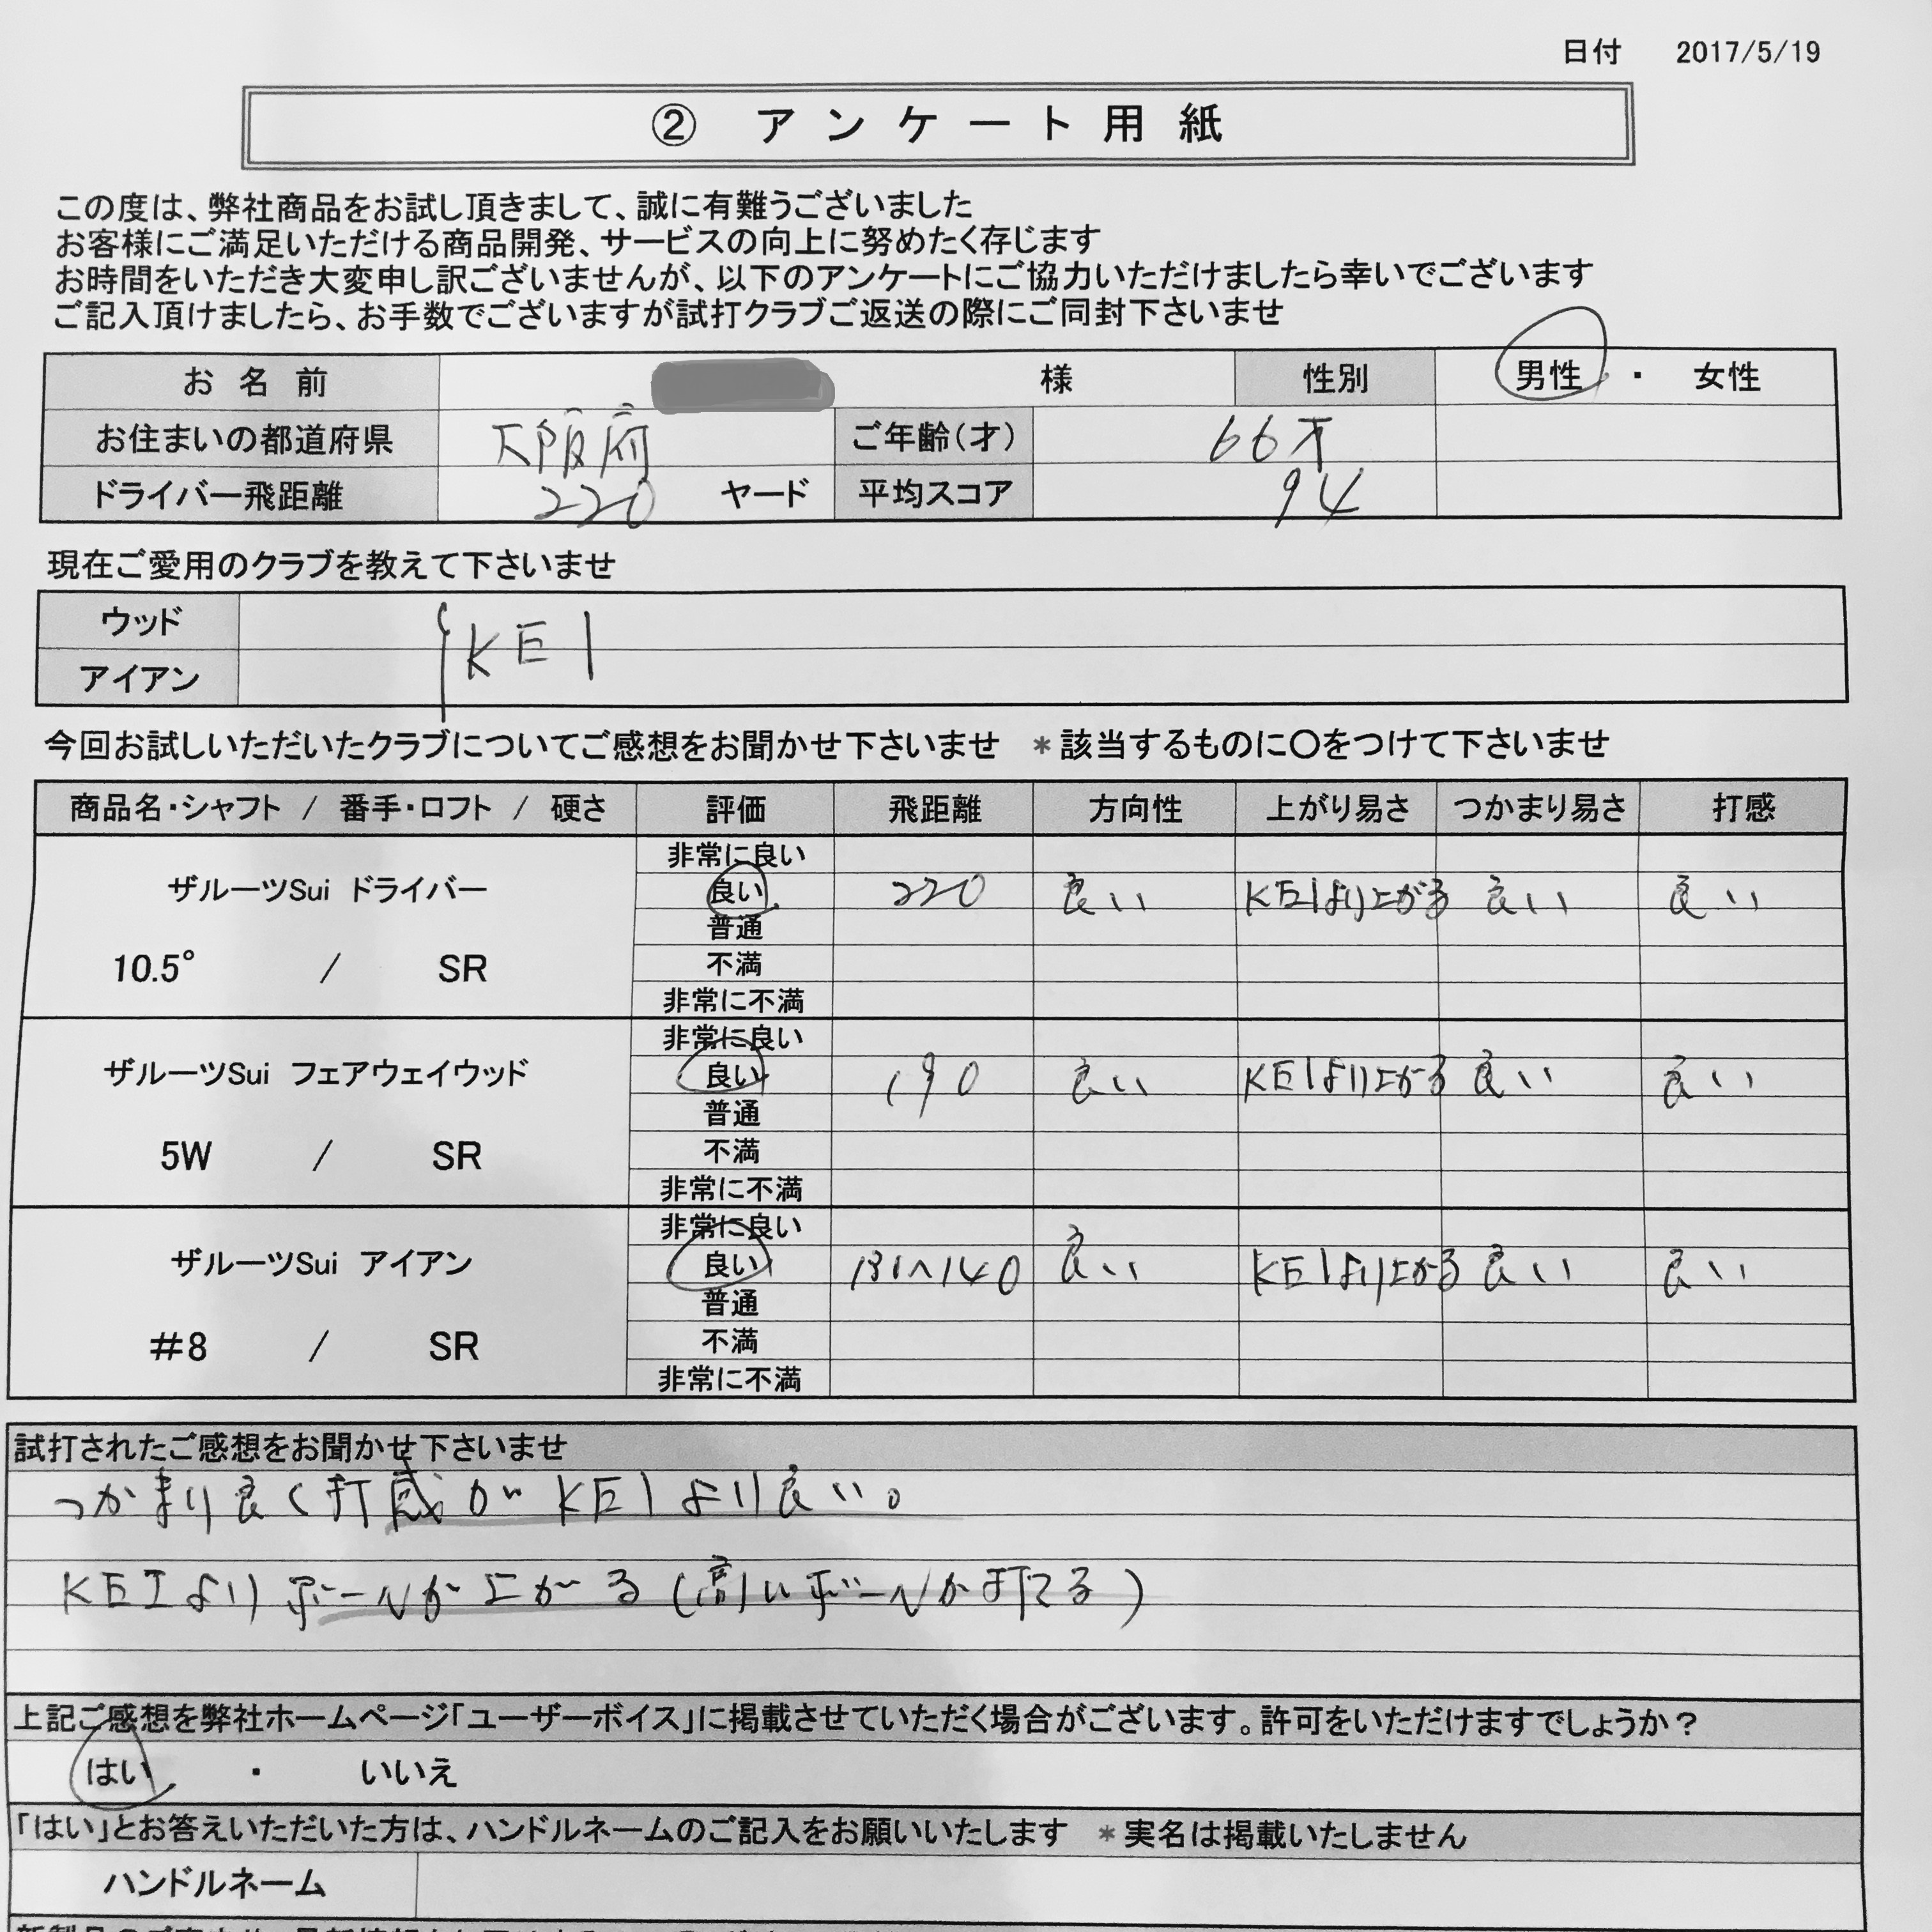 日付 2017/5/19
② アンケート用紙
この度は、弊社商品をお試し頂きまして、誠に有難うございました
お客様にご満足いただける商品開発、サービスの向上に努めたく存じます
お時間をいただき大変申し訳ございませんが、以下のアンケートにご協力いただけましたら幸いでございます
ご記入頂けましたら、お手数でございますが試打クラブご返送の際にご同封下さいませ
お名前 様 性別 男性 ・ 女性
お住まいの都道府県 大阪府 ご年齢(才) 66才
ドライバー飛距離 220 ヤード 平均スコア 94
現在ご愛用のクラブを教えて下さいませ
ウッド KEI
アイアン
今回お試しいただいたクラブについてご感想をお聞かせ下さいませ *該当するものに〇をつけて下さいませ
商品名・シャフト / 番手・ロフト / 硬さ 評価 飛距離 方向性 上がり易さ つかまり易さ 打感
非常に良い
ザルーツSui ドライバー 良い 220 良い KEIより上がる 良い 良い
普通
10.5° / SR 不満
非常に不満
非常に良い
ザルーツSui フェアウェイウッド 良い 190 良い KEIより上がる 良い 良い
普通
5W / SR 不満
非常に不満
非常に良い
ザルーツSui アイアン 良い 良い KEIより上がる 良い 良い
普通
#8 / SR 不満
非常に不満
試打されたご感想をお聞かせ下さいませ
つかまり良く打感がKEIより良い。
KEIよりボールが上がる(高いボールが打てる)
上記ご感想を弊社ホームページ「ユーザーボイス」に掲載させていただく場合がございます。許可をいただけますでしょうか?
はい ・ いいえ
「はい」とお答えいただいた方は、ハンドルネームのご記入をお願いいたします *実名は掲載いたしません
ハンドルネーム